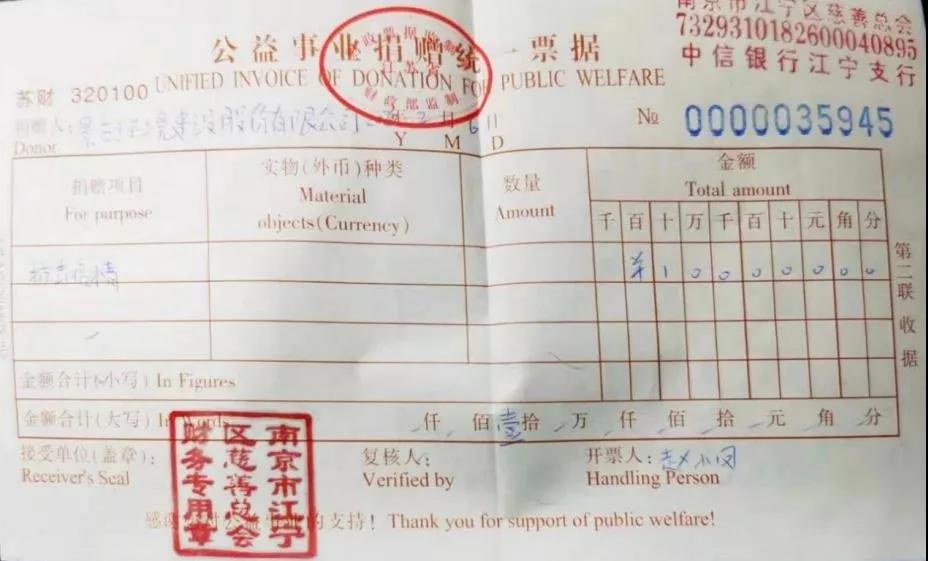 南京市江宁区慈善总会
7329310182600040895
中信银行江宁支行
公益事业捐赠统一票据
UNIFIED INVOICE OF DONATION FOR PUBLIC WELFARE
苏财 320100
财政部监制
捐赠人: 境建设股份有限公司 年 月 6日
Donor Y M D
№ 0000035945
捐赠项目
For purpose
实物(外币)种类
Material
objects(Currency)
数量
Amount
金额
Total amount
千 百 十 万 千 百 十 元 角 分
抗击疫情 ¥ 1 0 0 0 0 0 0 0
金额合计(小写) In Figures
金额合计(大写) In Words 仟 佰 壹 拾 万 仟 佰 拾 元 角 分
接受单位(盖章):
Receiver's Seal
复核人:
Verified by
开票人: 赵小凤
Handling Person
南京市江宁
区慈善总会
财务专用章
感谢您对公益事业的支持! Thank you for support of public welfare!
第二联 收据